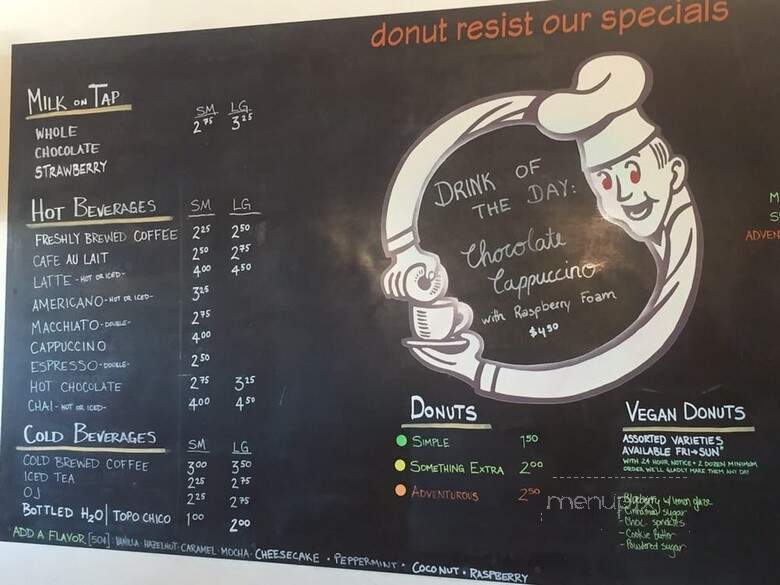 donut resist our specials
MILK ON TAP
SM LG
WHOLE 2.75 3.25
CHOCOLATE
STRAWBERRY
HOT BEVERAGES SM LG
FRESHLY BREWED COFFEE 2.25 2.50
CAFE AU LAIT 2.50 2.75
LATTE -HOT OR ICED- 4.00 4.50
AMERICANO -HOT OR ICED- 3.25
MACCHIATO -DOUBLE- 2.75
CAPPUCCINO 4.00
ESPRESSO -DOUBLE- 2.50
HOT CHOCOLATE 2.75 3.25
CHAI -HOT OR ICED- 4.00 4.50
COLD BEVERAGES SM LG
COLD BREWED COFFEE 3.00 3.50
ICED TEA 2.25 2.75
OJ 2.25 2.75
BOTTLED H2O | TOPO CHICO 1.00 2.00
ADD A FLAVOR [50¢]: VANILLA · HAZELNUT · CARAMEL · MOCHA · CHEESECAKE · PEPPERMINT · COCONUT · RASPBERRY
DRINK OF
THE DAY:
Chocolate
Cappuccino
with Raspberry Foam
$4.50
DONUTS
SIMPLE 1.50
SOMETHING EXTRA 2.00
ADVENTUROUS 2.50
VEGAN DONUTS
ASSORTED VARIETIES
AVAILABLE FRI→SUN*
WITH 24 HOUR NOTICE + 2 DOZEN MINIMUM
ORDER WE'LL GLADLY MAKE THEM ANY DAY
Blueberry w/ lemon glaze
- Cinnamon sugar
- Choc sprinkles
- Cookie Butter
- Powdered sugar
M
S
ADVEN